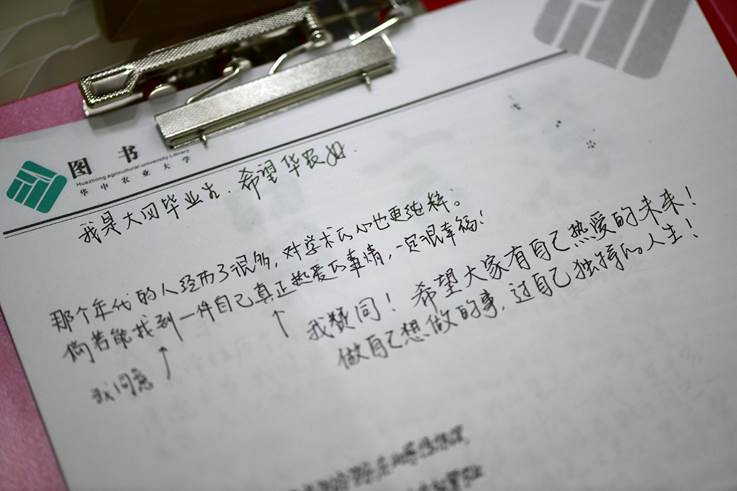 图书
Huazhong agricultural university Library
华中农业大学
我是大四毕业生,希望华农好.
那个年代的人经历了很多,对学术的心也更纯粹。
倘若能找到一件自己真正热爱的事情,一定很幸福!
我同意
我赞同!希望大家有自己热爱的未来!
做自己想做的事,过自己独特的人生!